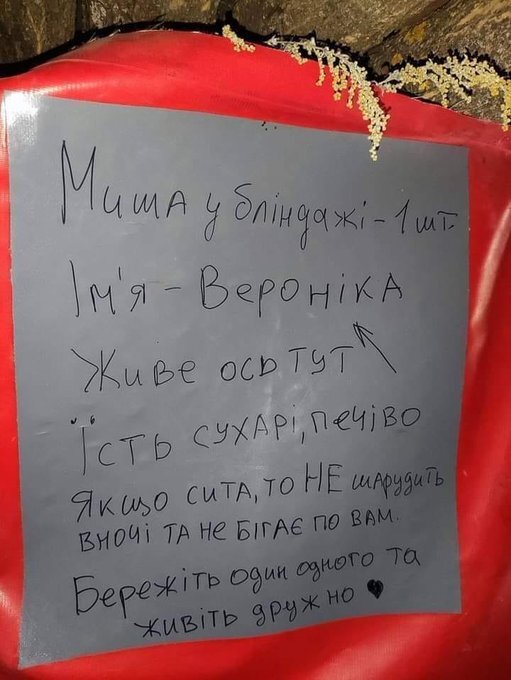 Миша у бліндажі - 1 шт.
Ім'я - Вероніка
Живе ось тут
Їсть сухарі, печіво
Якщо сита, то НЕ шарудить
вночі та не бігає по вам.
Бережіть один одного та
живіть дружно